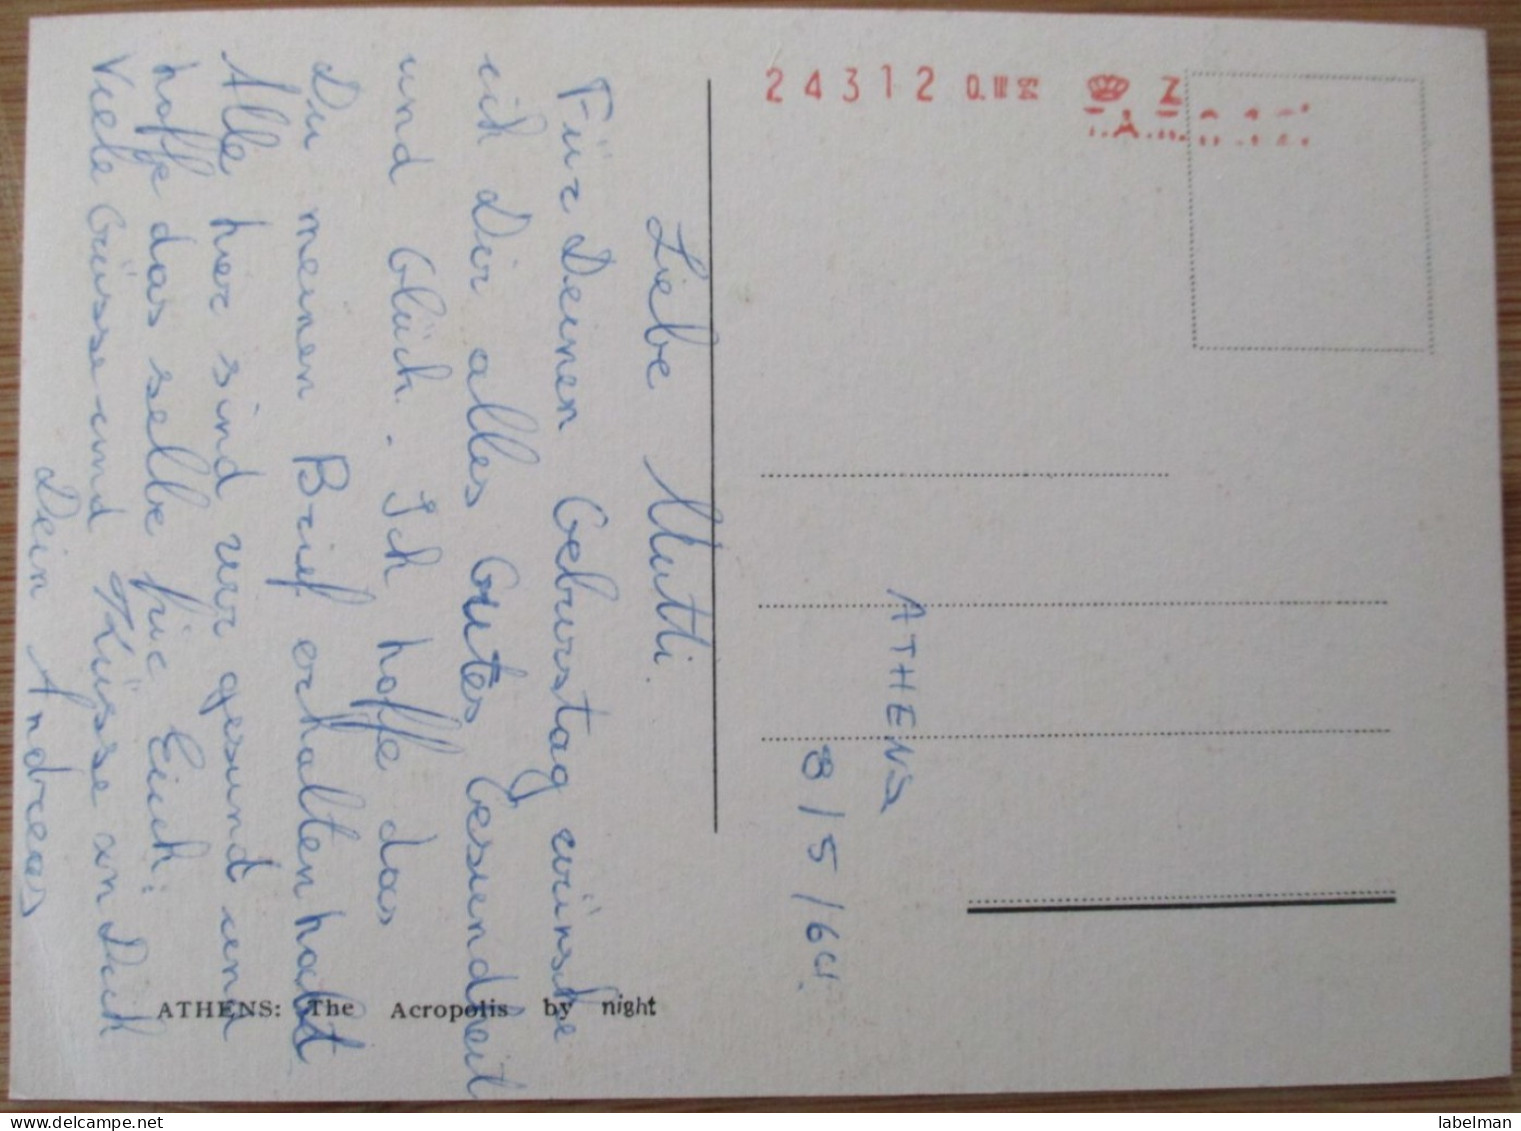 Liebe Mutti.
Für Deinen Geburstag wünsche
ich Dir alles Gutes Gesundheit
und Glück. Ich hoffe das
Du meinen Brief erhalten habt
Alle hier sind wir gesund und
hoffe das selbe für Euch.
Viele Grüsse und Küsse an Dich
Dein Andreas
ATHENS: The Acropolis by night
24312
ATHENS
8/5/64.
labelman
delcampe.net